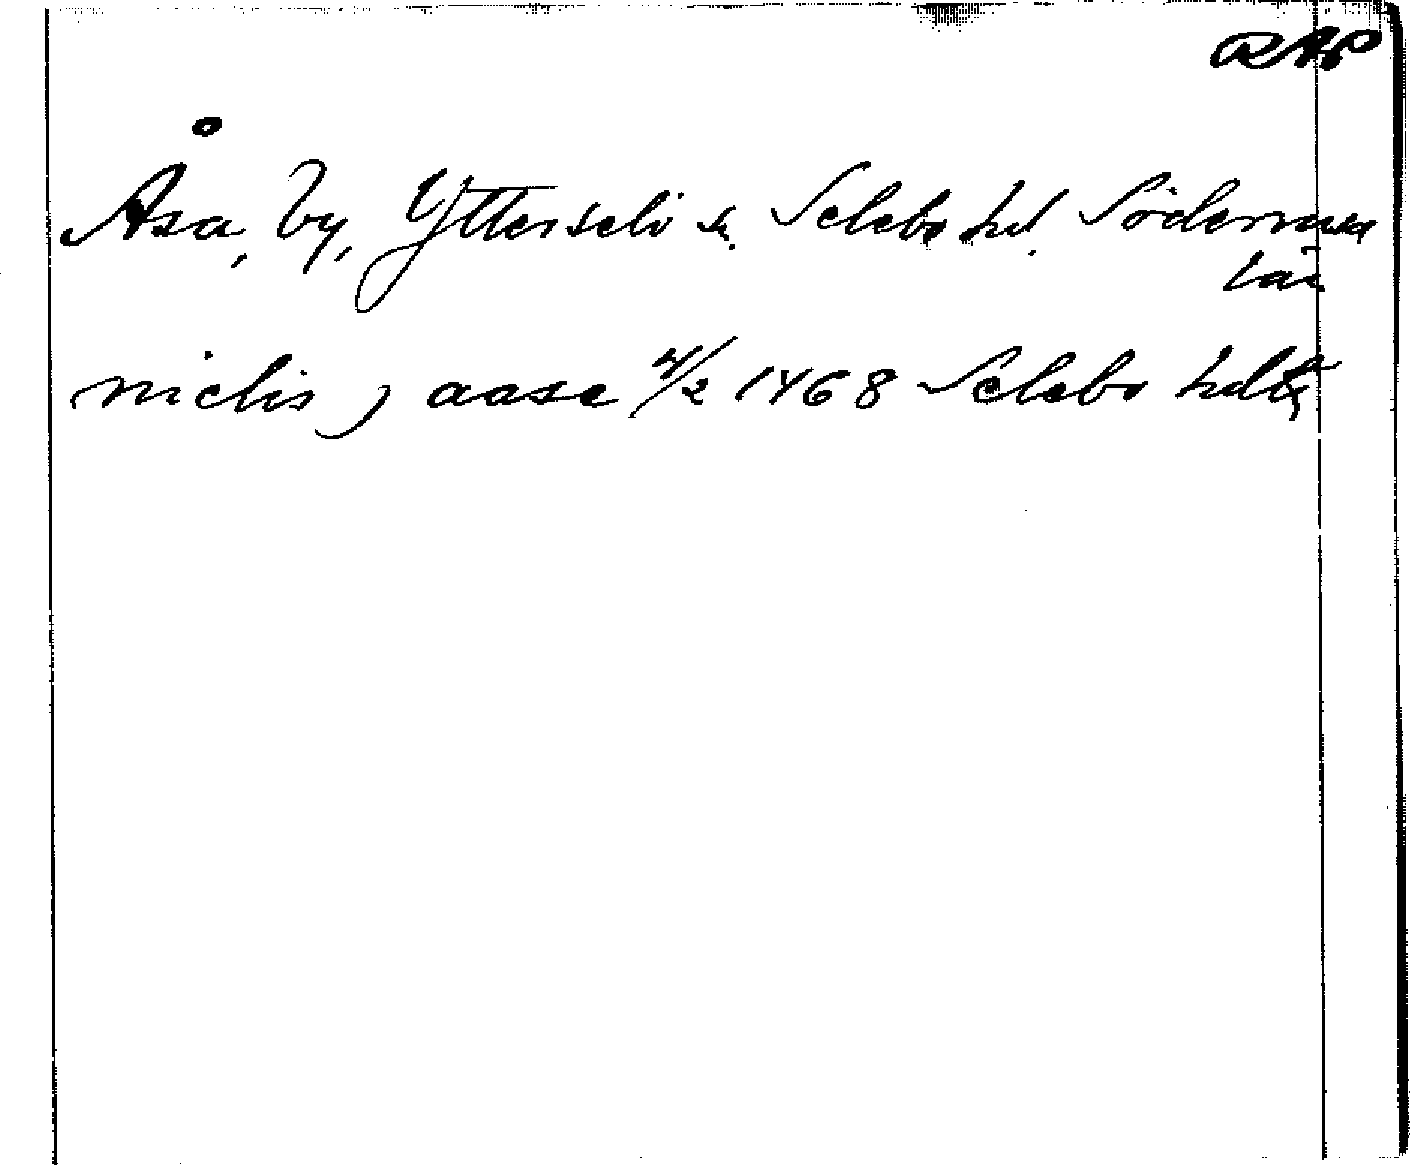 RAP
Åsa, by, Ytterselö sn. Selebo hd. Söderman
län
niclis j aase 4/2 1468 Selebo hd